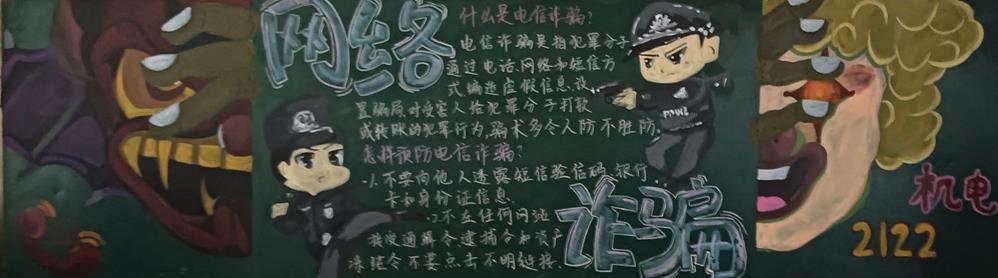 网络
什么是电信诈骗?
电信诈骗是指犯罪分子
通过电话、网络和短信方
式编造虚假信息,设
置骗局,对受害人给犯罪分子打款
或转账的犯罪行为,骗术多令人防不胜防。
怎样预防电信诈骗?
1.不要向他人透露短信验信码、银行
卡和身份证信息.
2.不在任何网址
接收通缉令逮捕令和资产
冻结令不要点击不明链接.
诈骗
机电
2122